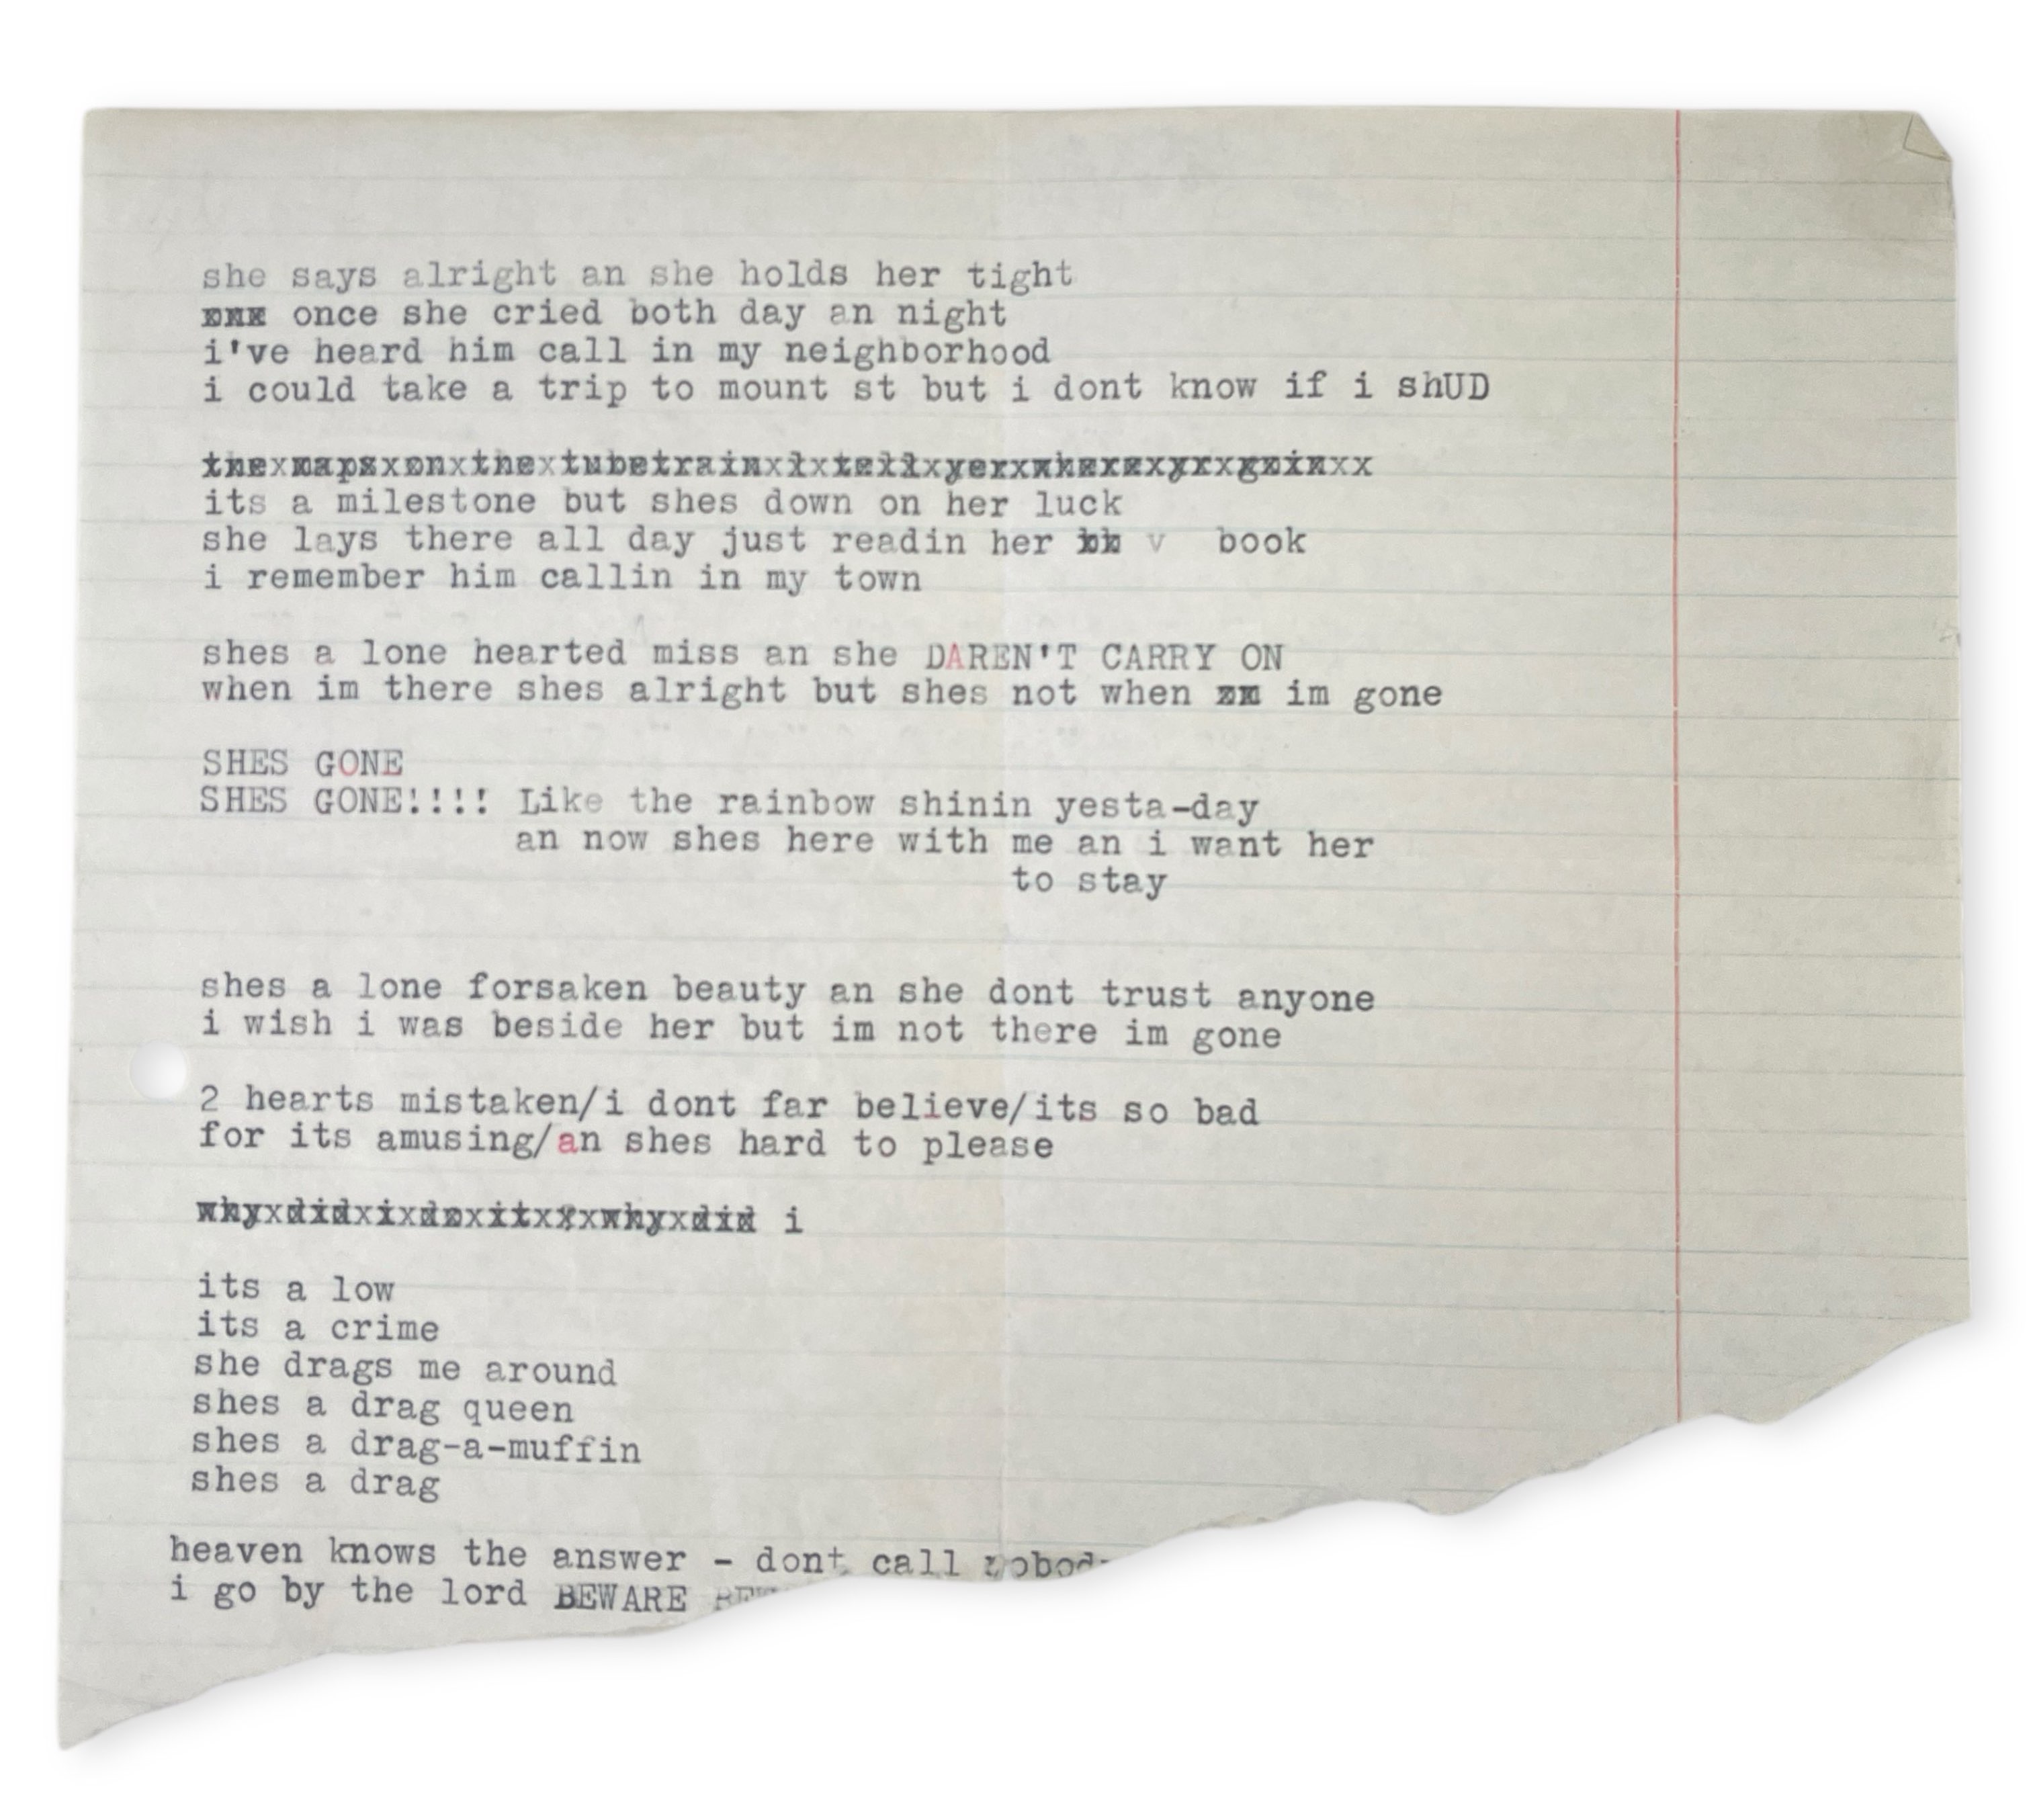 she says alright an she holds her tight
once she cried both day an night
i've heard him call in my neighborhood
i could take a trip to mount st but i dont know if i shUD
the maps on the tubetrain tell yer where yr goin
its a milestone but shes down on her luck
she lays there all day just readin her v book
i remember him callin in my town
shes a lone hearted miss an she DAREN'T CARRY ON
when im there shes alright but shes not when im gone
SHES GONE
SHES GONE!!!! Like the rainbow shinin yesta-day
an now shes here with me an i want her
to stay
shes a lone forsaken beauty an she dont trust anyone
i wish i was beside her but im not there im gone
2 hearts mistaken/i dont far believe/its so bad
for its amusing/an shes hard to please
why did i do it why did i
its a low
its a crime
she drags me around
shes a drag queen
shes a drag-a-muffin
shes a drag
heaven knows the answer - dont call
i go by the lord BEWARE